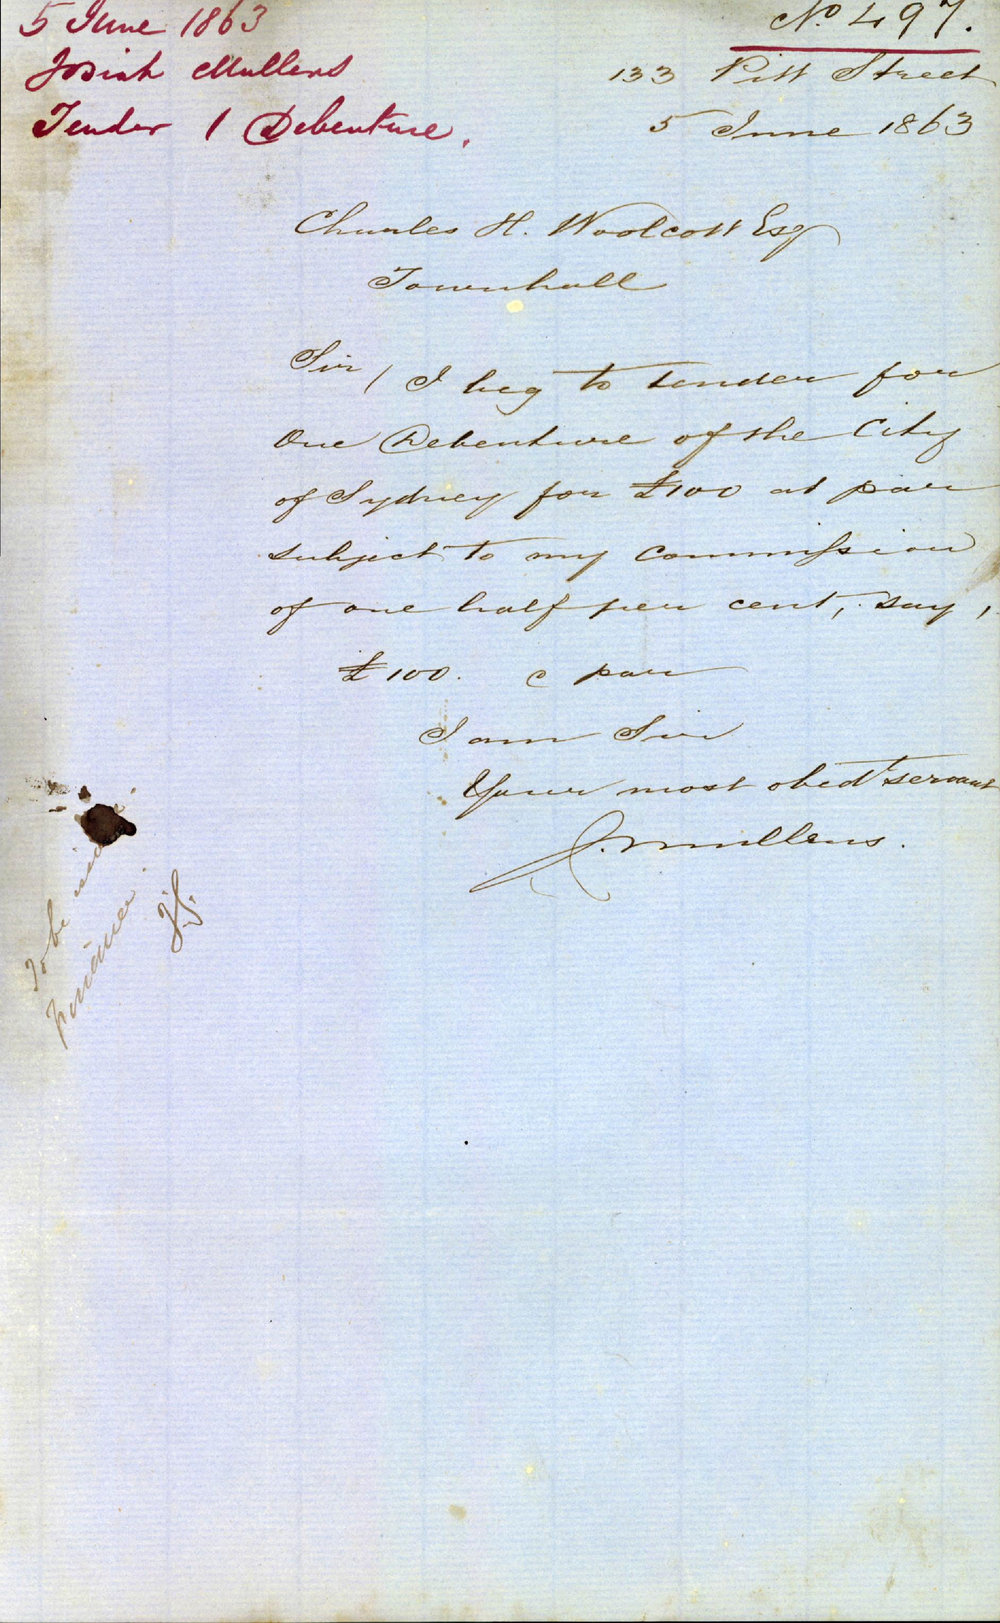 5 June 1863
Josiah Mullens
Tender 1 Debenture.
No. 497.
133 Pitt Street
5 June 1863
Charles H. Woolcott Esq
Townhall
Sir / I beg to tender for
One Debenture of the City
of Sydney for £100 at par
subject to my Commission
of one half per cent, say,
£100. c par
I am Sir
Your most obedt servant
J. Mullens.
To be
Finance.